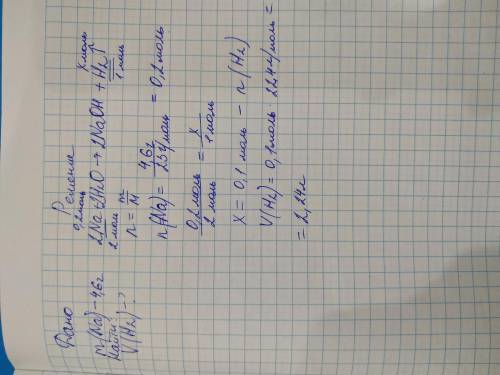 Дано
m(Na) - 4,6г
Найти:
V(H2) - ?
Решение
0,2 моль x моль
2Na + 2H2O → 2NaOH + H2↑
2 моль 1 моль
n = m/M
n(Na) = 4,6г / 23г/моль = 0,2 моль
0,2 моль / 2 моль = x / 1 моль
x = 0,1 моль - n(H2)
V(H2) = 0,1 моль · 22,4л/моль =
= 2,24л